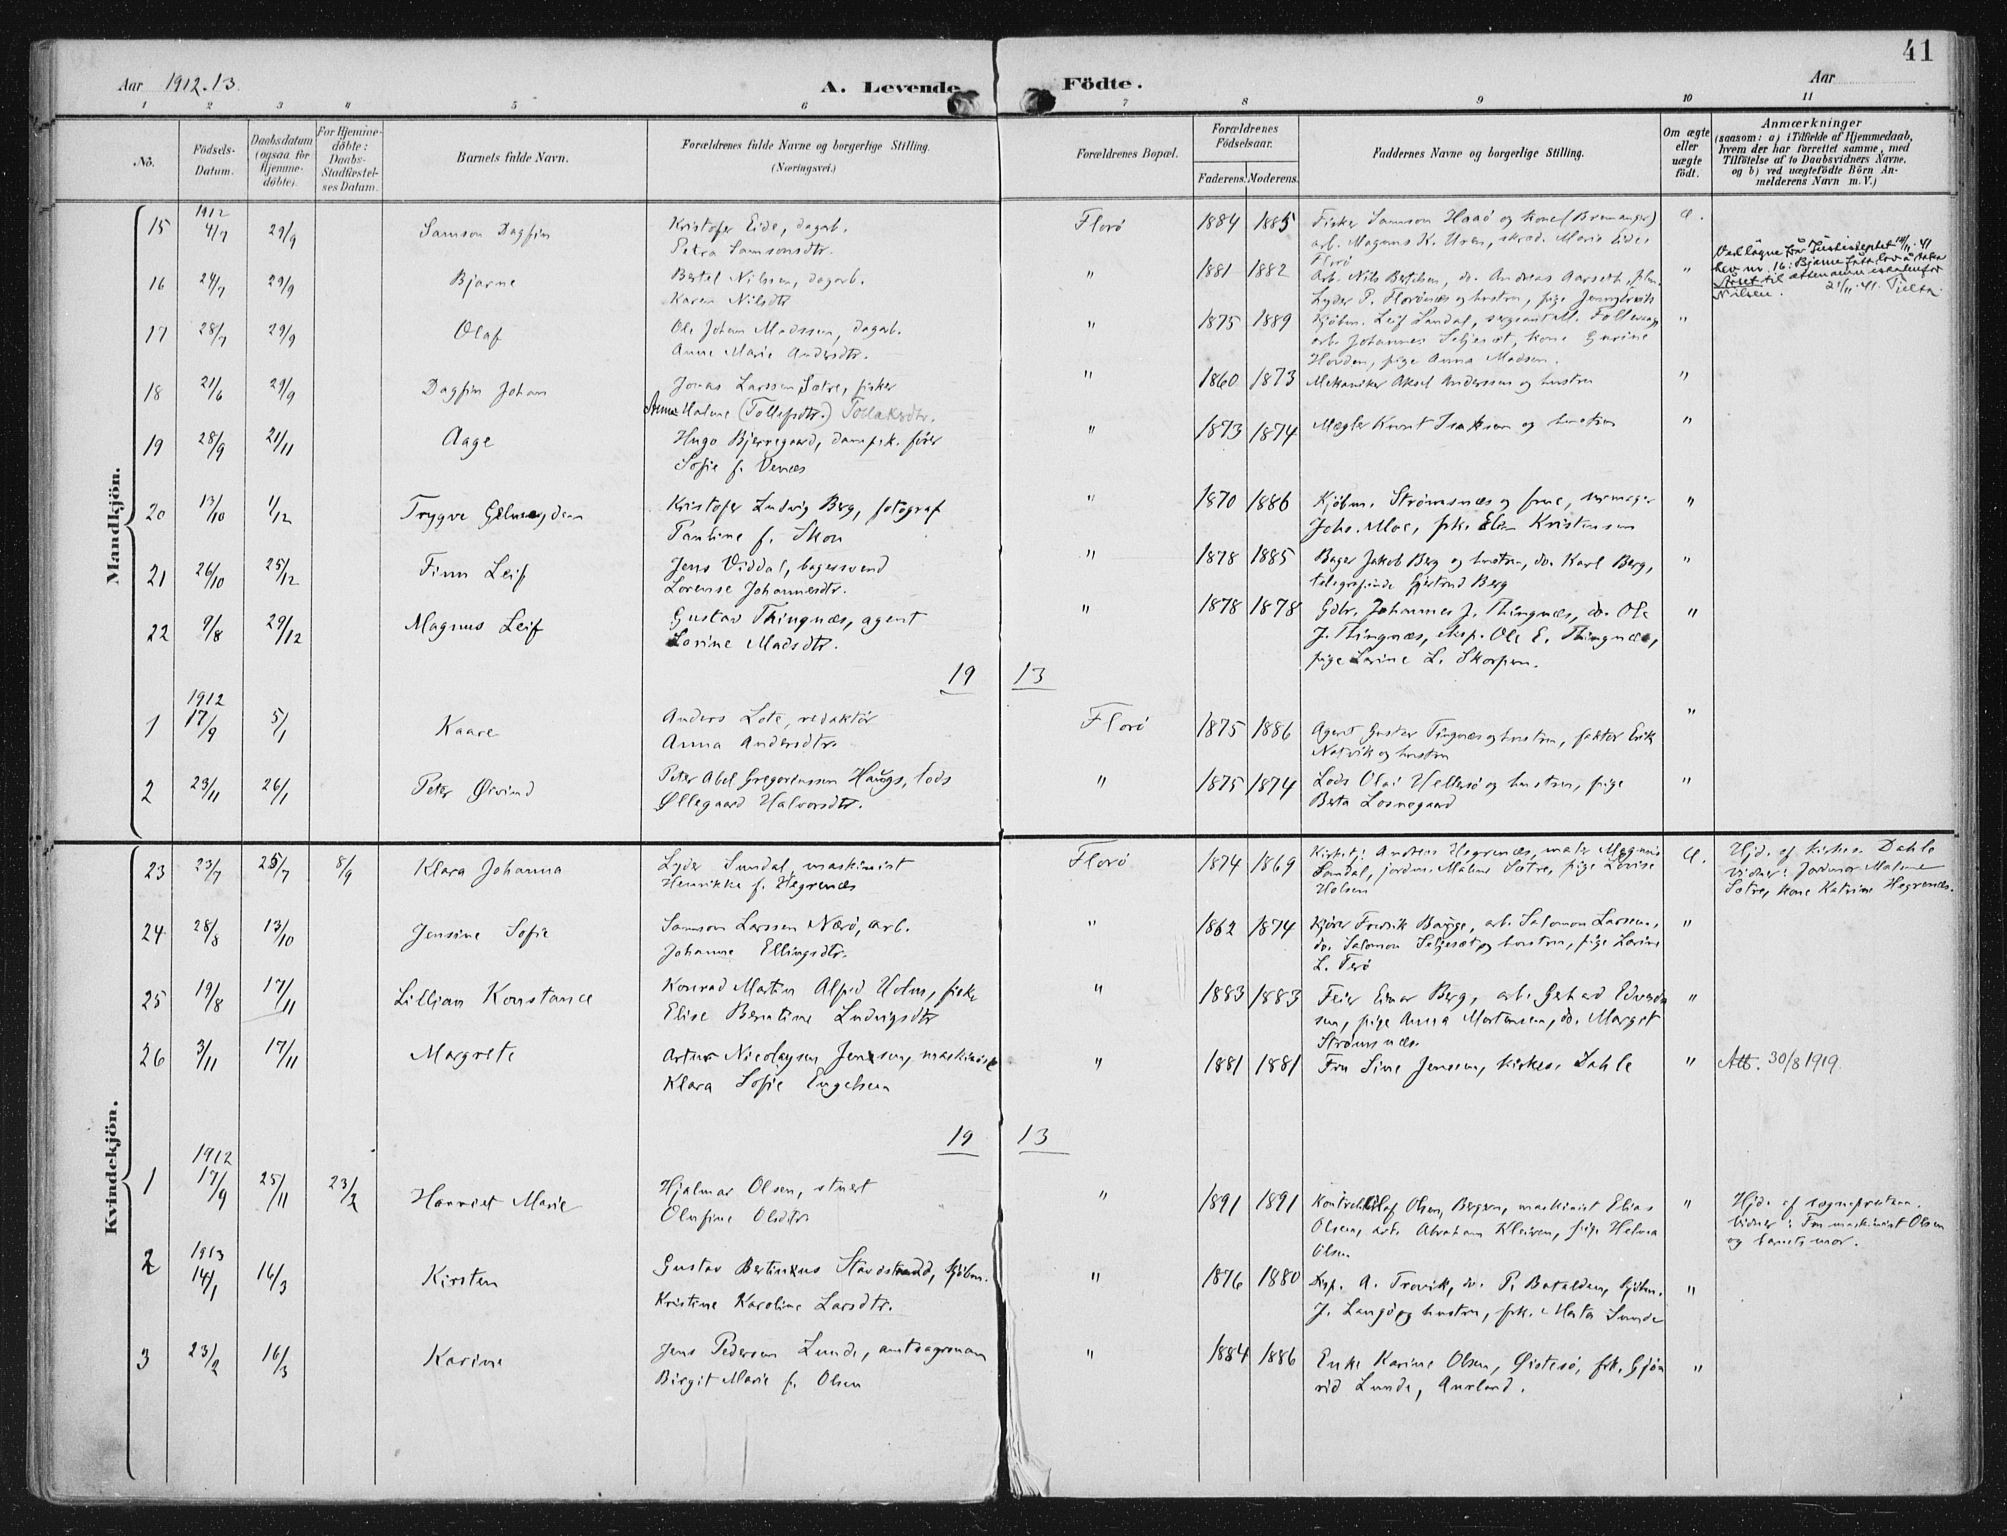 41
Aar 1912.13. A. Levende Födte. Aar
1 2 3 4 5 6 7 8 9 10 11
No.
Födsels-Datum.
Daabsdatum (ogsaa för Hjemme-döbte).
For Hjemme-döbte: Daabs-Stadfæstel-ses Datum.
Barnets fulde Navn.
Forældrenes fulde Navne og borgerlige Stilling. (Næringsvei.)
Forældrenes Bopæl.
Forældrenes Födselsaar.
Faderens. Moderens.
Faddernes Navne og borgerlige Stilling.
Om ægte eller uægte födt.
Anmærkninger
(saasom: a) i Tilfælde af Hjemmedaab, hvem der har forrettet samme, med Tilföielse af to Daabsvidners Navne, og b) ved uægtefödte Börn An-melderens Navn m. V.)
Mandkjön.
1912
15 4/7 29/9 Samson Dagfin Kristofer Eide, dagarb. Florö 1884 1885 Fisker Samson Haaö og kone (Bremanger) æ.
Petra Samsonsdtr. arb. Magnus K. Uren, skræd. Marie Eide, Florö
16 24/7 29/9 Bjarne Bertel Nilsen, dagarb. " 1881 1882 Arb. Nils Bertilsen, do. Andreas Aarseth, "
Karen Nilsdtr Lyder P. Florönes og hustru, pige
Nilsen. 21/11.41.
17 28/7 29/9 Olaf Ole Johan Madssen, dagarb. " 1875 1889 Kjöbm. Leif Sandal, sergeant M. "
Anne Marie Andersdtr. arb. Johannes Seljeset, kone Gurine
Hovden, pige Anna Madsen.
18 21/6 29/9 Dagfin Johan Jonas Larssen Sætre, fisker " 1860 1873 Mekaniker Aksel Anderssen og hustru "
Anne Malene (Tollefsdtr.) Tollaksdtr.
19 28/9 21/11 Aage Hugo Bjerregaard, dampsk. förer " 1873 1874 Mægler Knut Isaksen og hustru "
Sofie f. Venæs
20 13/10 1/12 Trygve Kristofer Ludvig Berg, fotograf " 1870 1886 Kjöbm. Strömsnæs og frue, "
Pauline f. Skou Johs. Moe, frk. Elen Kristensen
21 26/10 25/12 Finn Leif Jens Viddal, bagersvend " 1878 1885 Bager Jakob Berg og hustru, do. Karl Berg, "
Lorense Johannesdtr. telegrafinde Gjertrud Berg
22 9/8 29/12 Magnus Leif Gustav Thingnæs, agent " 1878 1878 Gdbr. Johannes J. Thingnæs, do. Ole "
Lovine Madsdtr. J. Thingnæs, eksp. Ole E. Thingnæs,
pige Lovine L. Skorpen.
19 13
1912
1 17/9 5/1 Kaare Anders Lote, redaktör Florö 1875 1886 Agent Gustav Tingnæs og hustru, faktor Erik "
Anna Andersdtr. Natvik og hustru
2 23/11 26/1 Peter Øivind Peter Abel Gregoriussen Haugs, lods " 1875 1874 Lods Olai Hellersö og hustru, pige "
Øllegaard Halvorsdtr. Berta Losnegaard
Kvindekjön.
23 23/7 25/7 8/9 Klara Johanna Lyder Sundal, maskinist Florö 1874 1869 Kirket: Andreas Hegrenæs, maler Magnus æ. Hjd. af kirkes. Dahle
Henrikke f. Hegrenæs Sandal, jordm. Malene Sætre, pige Lovise Vidner: Jordmor Malene
Holsen Sætre, kone Katrine Hegrenæs.
24 28/8 13/10 Jensine Sofie Samson Larssen Nærö, arb. " 1862 1874 Kjörer Fredrik Bauge, arb. Salomon Larsen, "
Johanne Ellingsdtr. do. Salomon Seljeset og hustru, pige Lovine
L. Terö
25 19/8 17/11 Lillian Konstance Konrad Martin Alfred Holm, fisker " 1883 1883 Feier Einar Berg, arb. Gerhard Edvard- "
Elise Berntine Ludvigsdtr sen, pige Anna Mortensen, do. Margit
Strömsnæs
26 3/11 17/11 Margrete Artur Nicolaysen Jensen, maskinist " 1881 1881 Fru Sine Jensen, kirkes. Dahle " Att. 30/8 1919.
Klara Sofie Engelsen
19 13
1912
1 17/9 25/11 23/2 Harriet Marie Hjalmar Olsen, stuert " 1891 1891 Olaf Olsen, Bergen, maskinist Elias " Hjd. af sognepresten.
Olufine Olsdtr Olsen, Abraham Kleiven, pige Helma Vidner: Fru maskinist Olsen
Olsen og barnets mor.
1913
2 14/1 16/3 Kirsten Gustav Bertinius Stavöstrand, kjöbm. " 1876 1880 Eksp. A. Trovik, do. P. Batalden, kjöbm. "
Kristine Karoline Larsdtr. J. Langö og hustru, frk. Marta Sunde
3 23/2 16/3 Karine Jens Pedersen Lunde, amtsagronom " 1884 1886 Enke Karine Olsen, Øistesö, frk. Gjön "
Birgit Marie f. Olsen rid Lunde, Aurland.